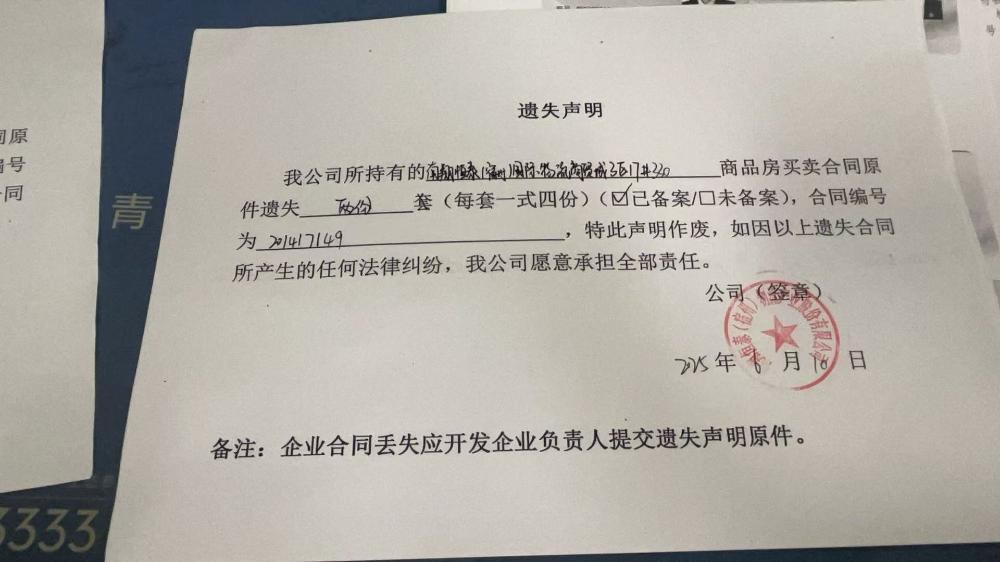 司原
编号
合同
青
3333
遗失声明
我公司所持有的 国际物流商贸城3B17#330 商品房买卖合同原
件遗失 两份 套（每套一式四份）（☑已备案/□未备案），合同编号
为 201417149 ，特此声明作废，如因以上遗失合同
所产生的任何法律纠纷，我公司愿意承担全部责任。
公司（签章）
股份有限公司
2025年6月10日
备注：企业合同丢失应开发企业负责人提交遗失声明原件。
号